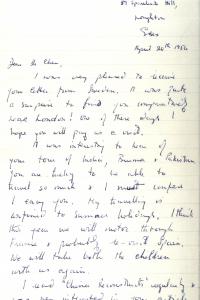 Hill,
Loughton
Essex
April 20th
Dear Dr Chen,
I was very pleased to receive
your letter from Sweden. It was quite
a surprise to find you comparatively
near London! One of these days I
hope you will pay us a visit.
It was interesting to hear of
your tour of India, Burma & Pakistan.
You are lucky to be able to
travel so much & I must confess
I envy you. My travelling is
confined to summer holidays. I think
this year we will motor through
France & probably re-visit Spain.
We will take both the children
with us again.
I read "China Reconstructs" regularly &
was very interested in your article